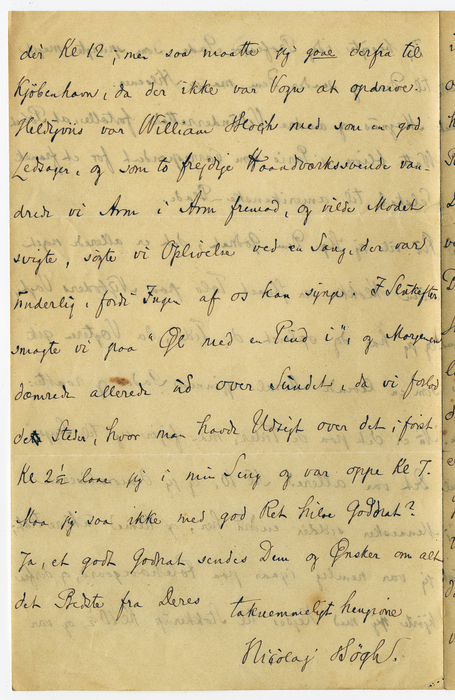 der Kl 12; men saa maatte jeg gaae derfra til
Kjöbenhavn, da der ikke var Vogn at opdrive.
Heldigvis var William Bloch med som en god
Ledsager, og som to freidige Haandværkssvende van-
drede vi Arm i Arm fremad, og vilde Modet
svigte, søgte vi Oplivelse ved en Sang, der var
underlig, fordi Ingen af os kan synge. I Slukefter
smagte vi paa "Øl med en Pind i", og Morgenen
dæmrede allerede ud over Sundet, da vi forlod
det Sted, hvor man havde Udsigt over det; først
Kl 2½ laae jeg i min Seng og var oppe Kl 7.
Maa jeg saa ikke med god Ret hilse Godnat?
Ja, et godt Godnat sendes Dem og Ønsker om alt
det Bedste fra Deres
taknemmeligt hengivne
Nicolaj Bøgh.